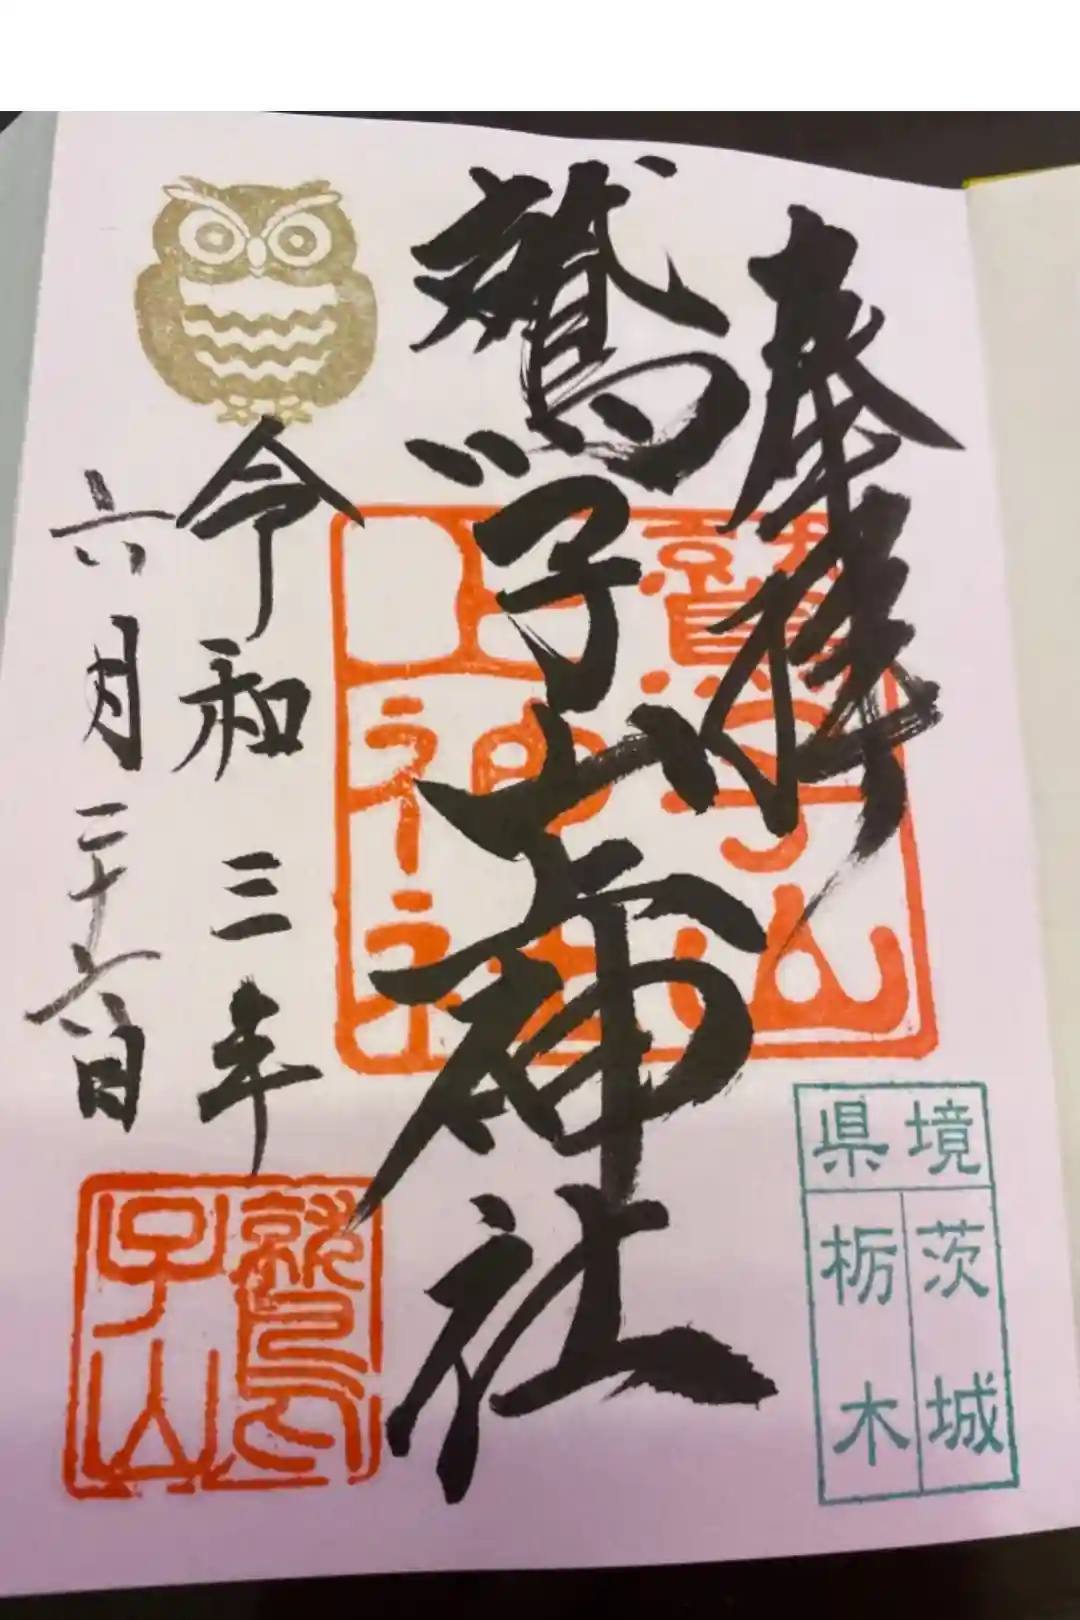 奉拝
鷲子山上神社
令和三年
六月二十六日
鷲子山上神社
鷲子山
県境
茨城
栃木